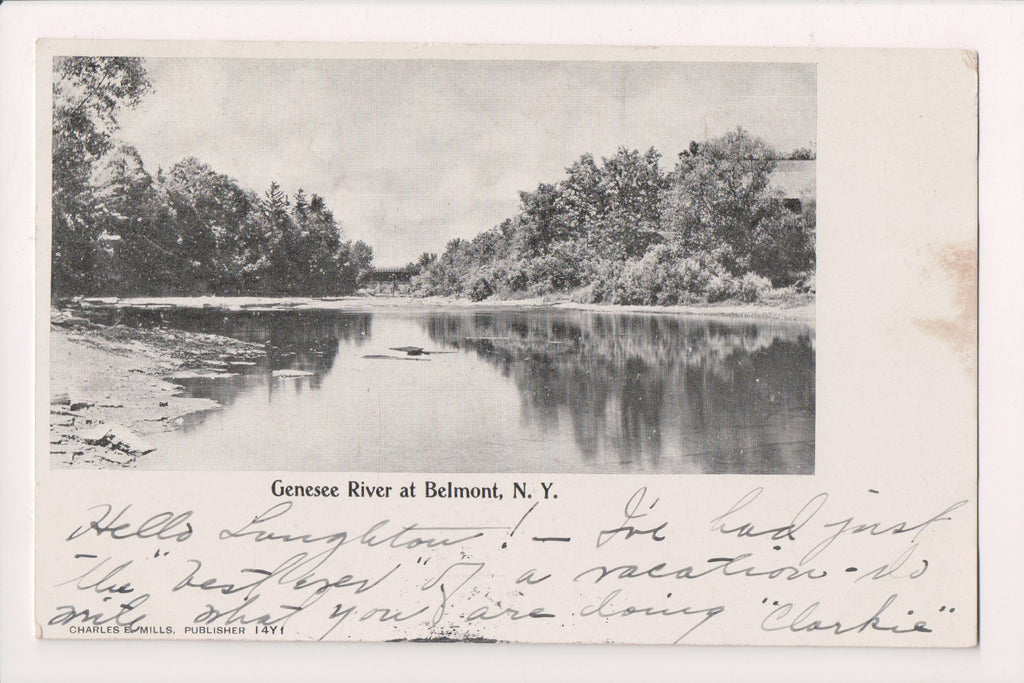 Genesee River at Belmont, N. Y.
Hello Langhton! - I've had just
the "best ever" of a vacation - do
write what you are doing "Clarkie"
CHARLES E. MILLS, PUBLISHER 14Y1